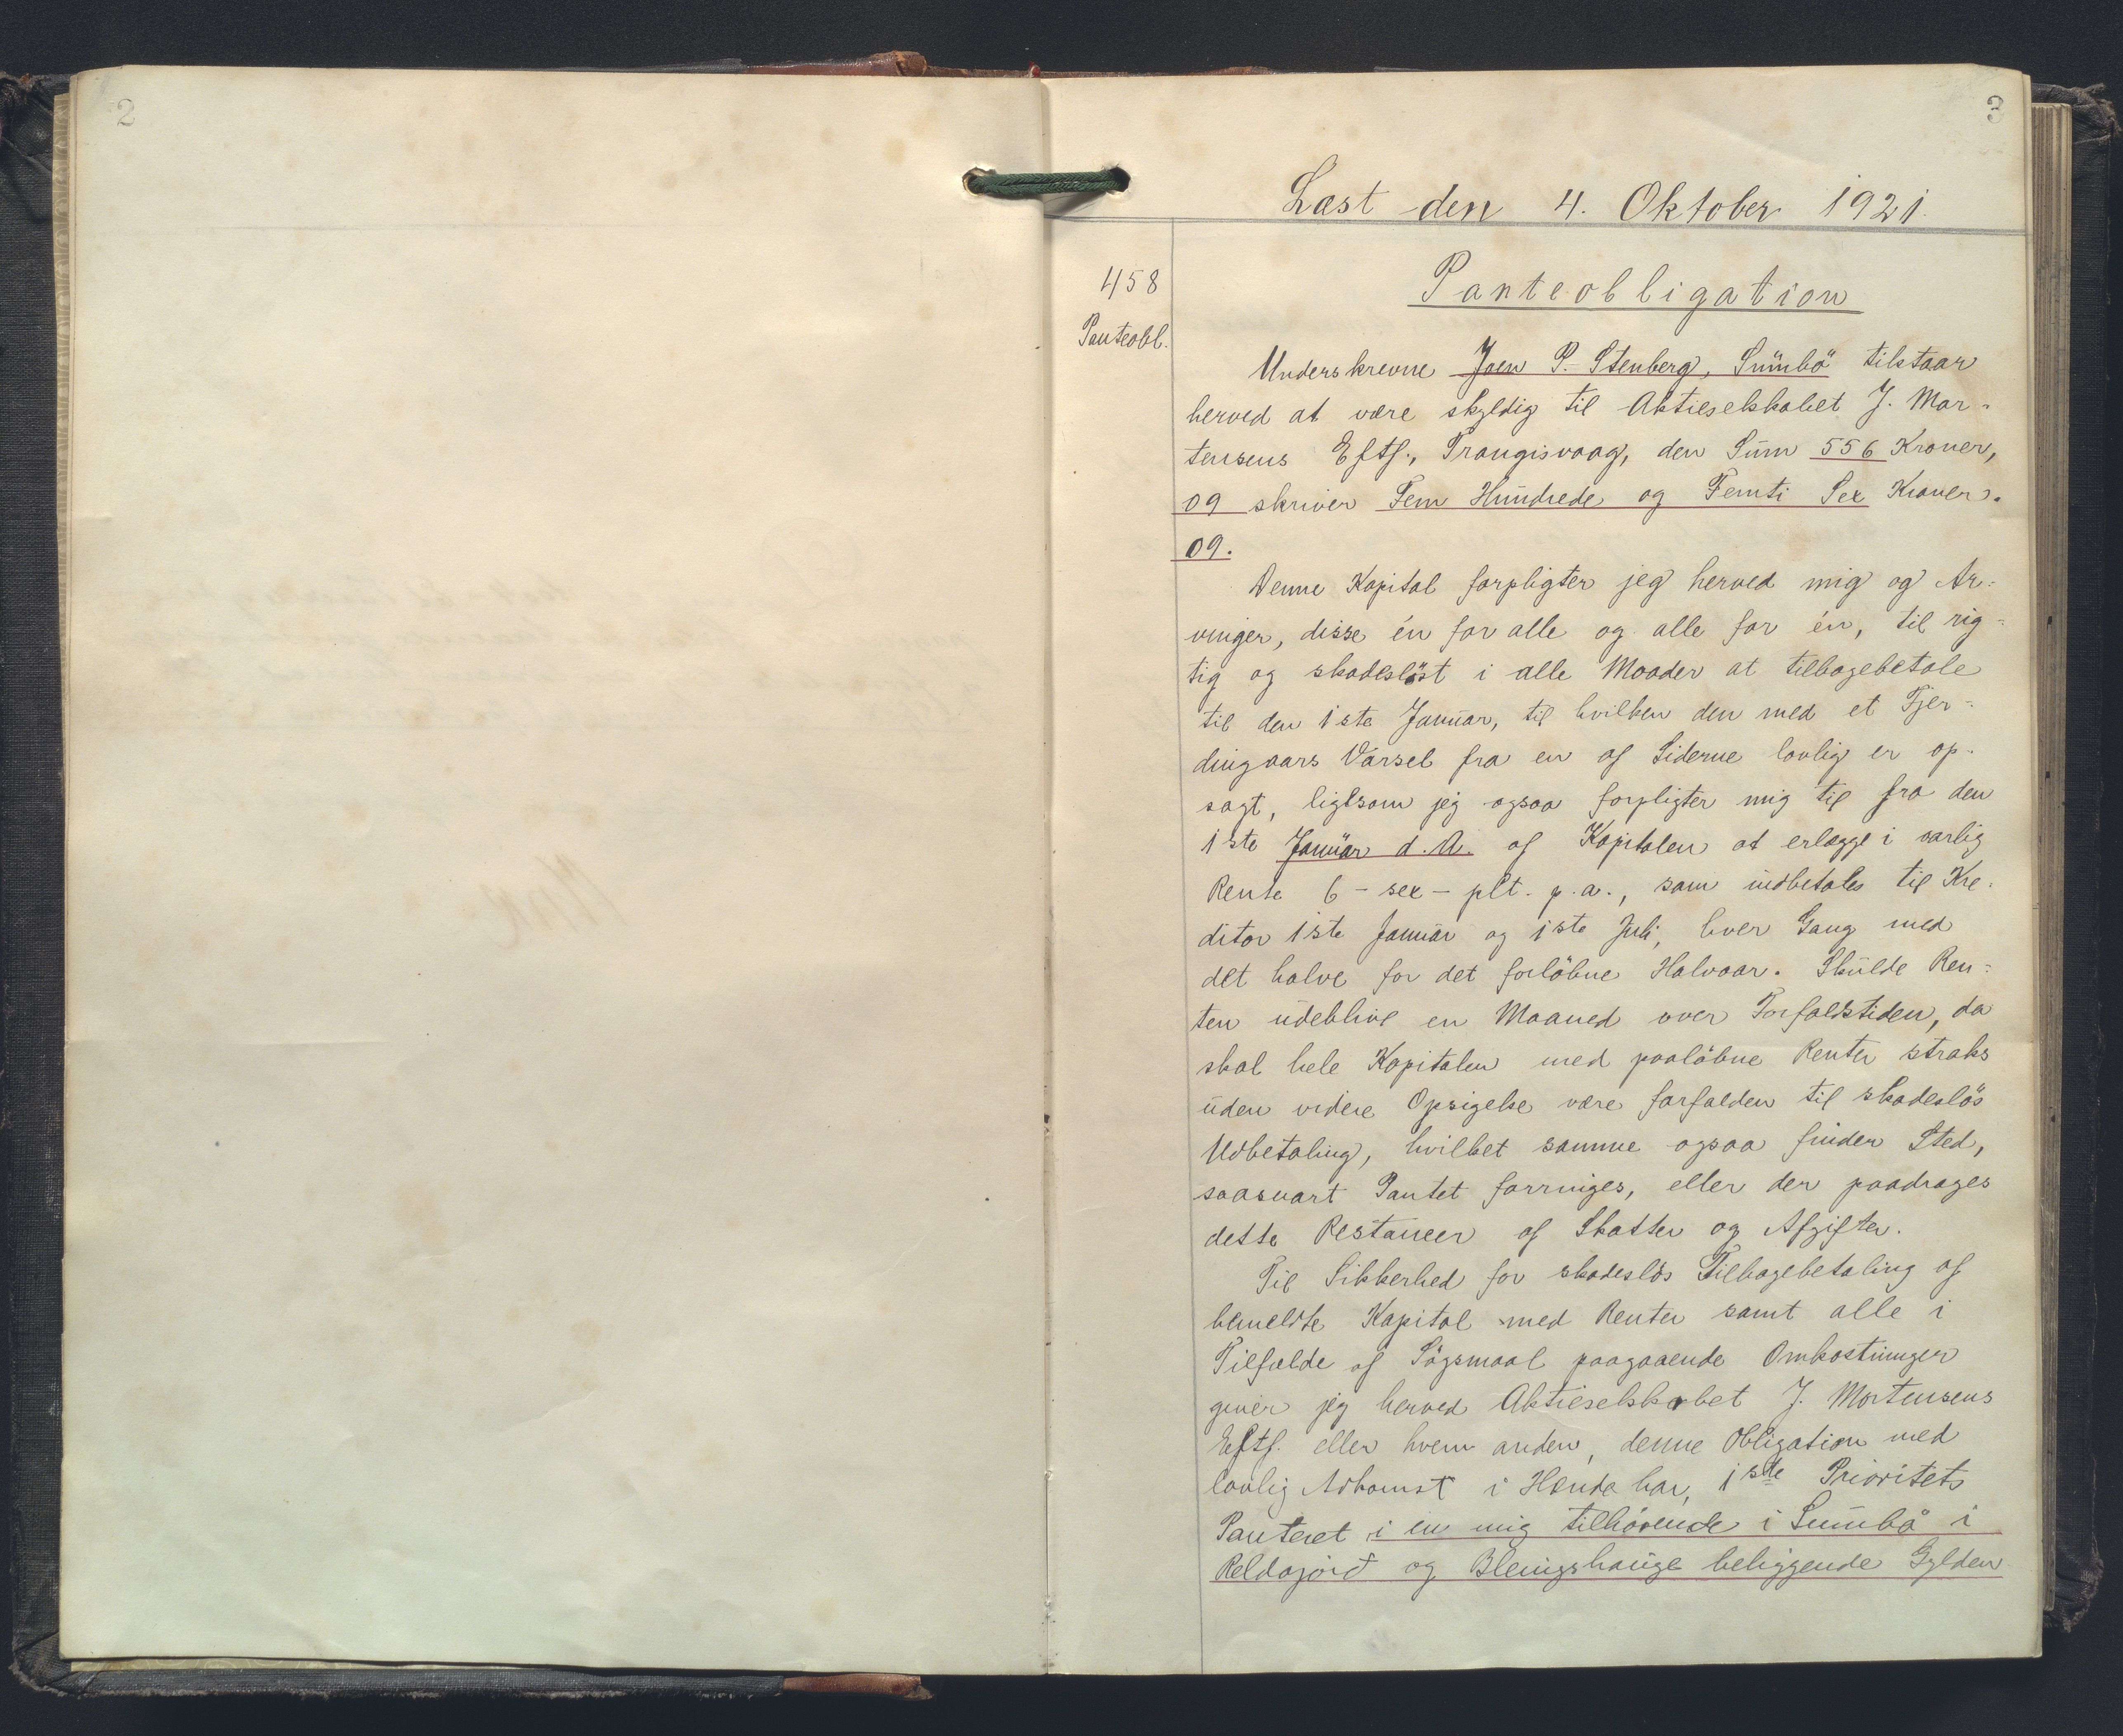 2
3
Læst den 4. Oktober 1921.
458
Panteobl.
Panteobligation
Underskrevne Joen P. Stenberg, Sumbö tilstaar
herved at være skyldig til Aktieselskabet J. Mor-
tensens Eftf., Trangisvaag, den Sum 556 Kroner,
09 skriver Fem Hundrede og Femti Sex Kroner.
09.
Denne Kapital forpligter jeg herved mig og Ar-
vinger, disse én for alle og alle for én, til rig-
tig og skadesløst i alle Maader at tilbagebetale
til den 1ste Januar, til hvilken den med et Fjer-
dingaars Varsel fra en af Siderne lovlig er op-
sagt, ligesom jeg ogsaa forpligter mig til fra den
1ste Januar d.A. af Kapitalen at erlægge i aarlig
Rente 6 - sex - pCt. p.a., som indbetales til Kre-
ditor 1ste Januar og 1ste Juli, hver Gang med
det halve for det forløbne Halvaar. Skulde Ren-
ten udeblive en Maaned over Forfaldstiden, da
skal hele Kapitalen med paaløbne Renter straks
uden videre Opsigelse være forfalden til skadesløs
Udbetaling, hvilket samme ogsaa finder Sted,
saasnart Pantet forringes, eller der paadrages
dette Restancer af Skatter og Afgifter.
Til Sikkerhed for skadesløs Tilbagebetaling af
bemeldte Kapital med Renter samt alle i
Tilfælde af Søgsmaal paagaaende Omkostninger
giver jeg herved Aktieselskabet J. Mortensens
Eftf. eller hvem anden, denne Obligation med
lovlig Adkomst i Hænde har, 1ste Prioritets
Panteret i en mig tilhørende i Sumbø i
Reldagørd og Blengshauge beliggende Gylden